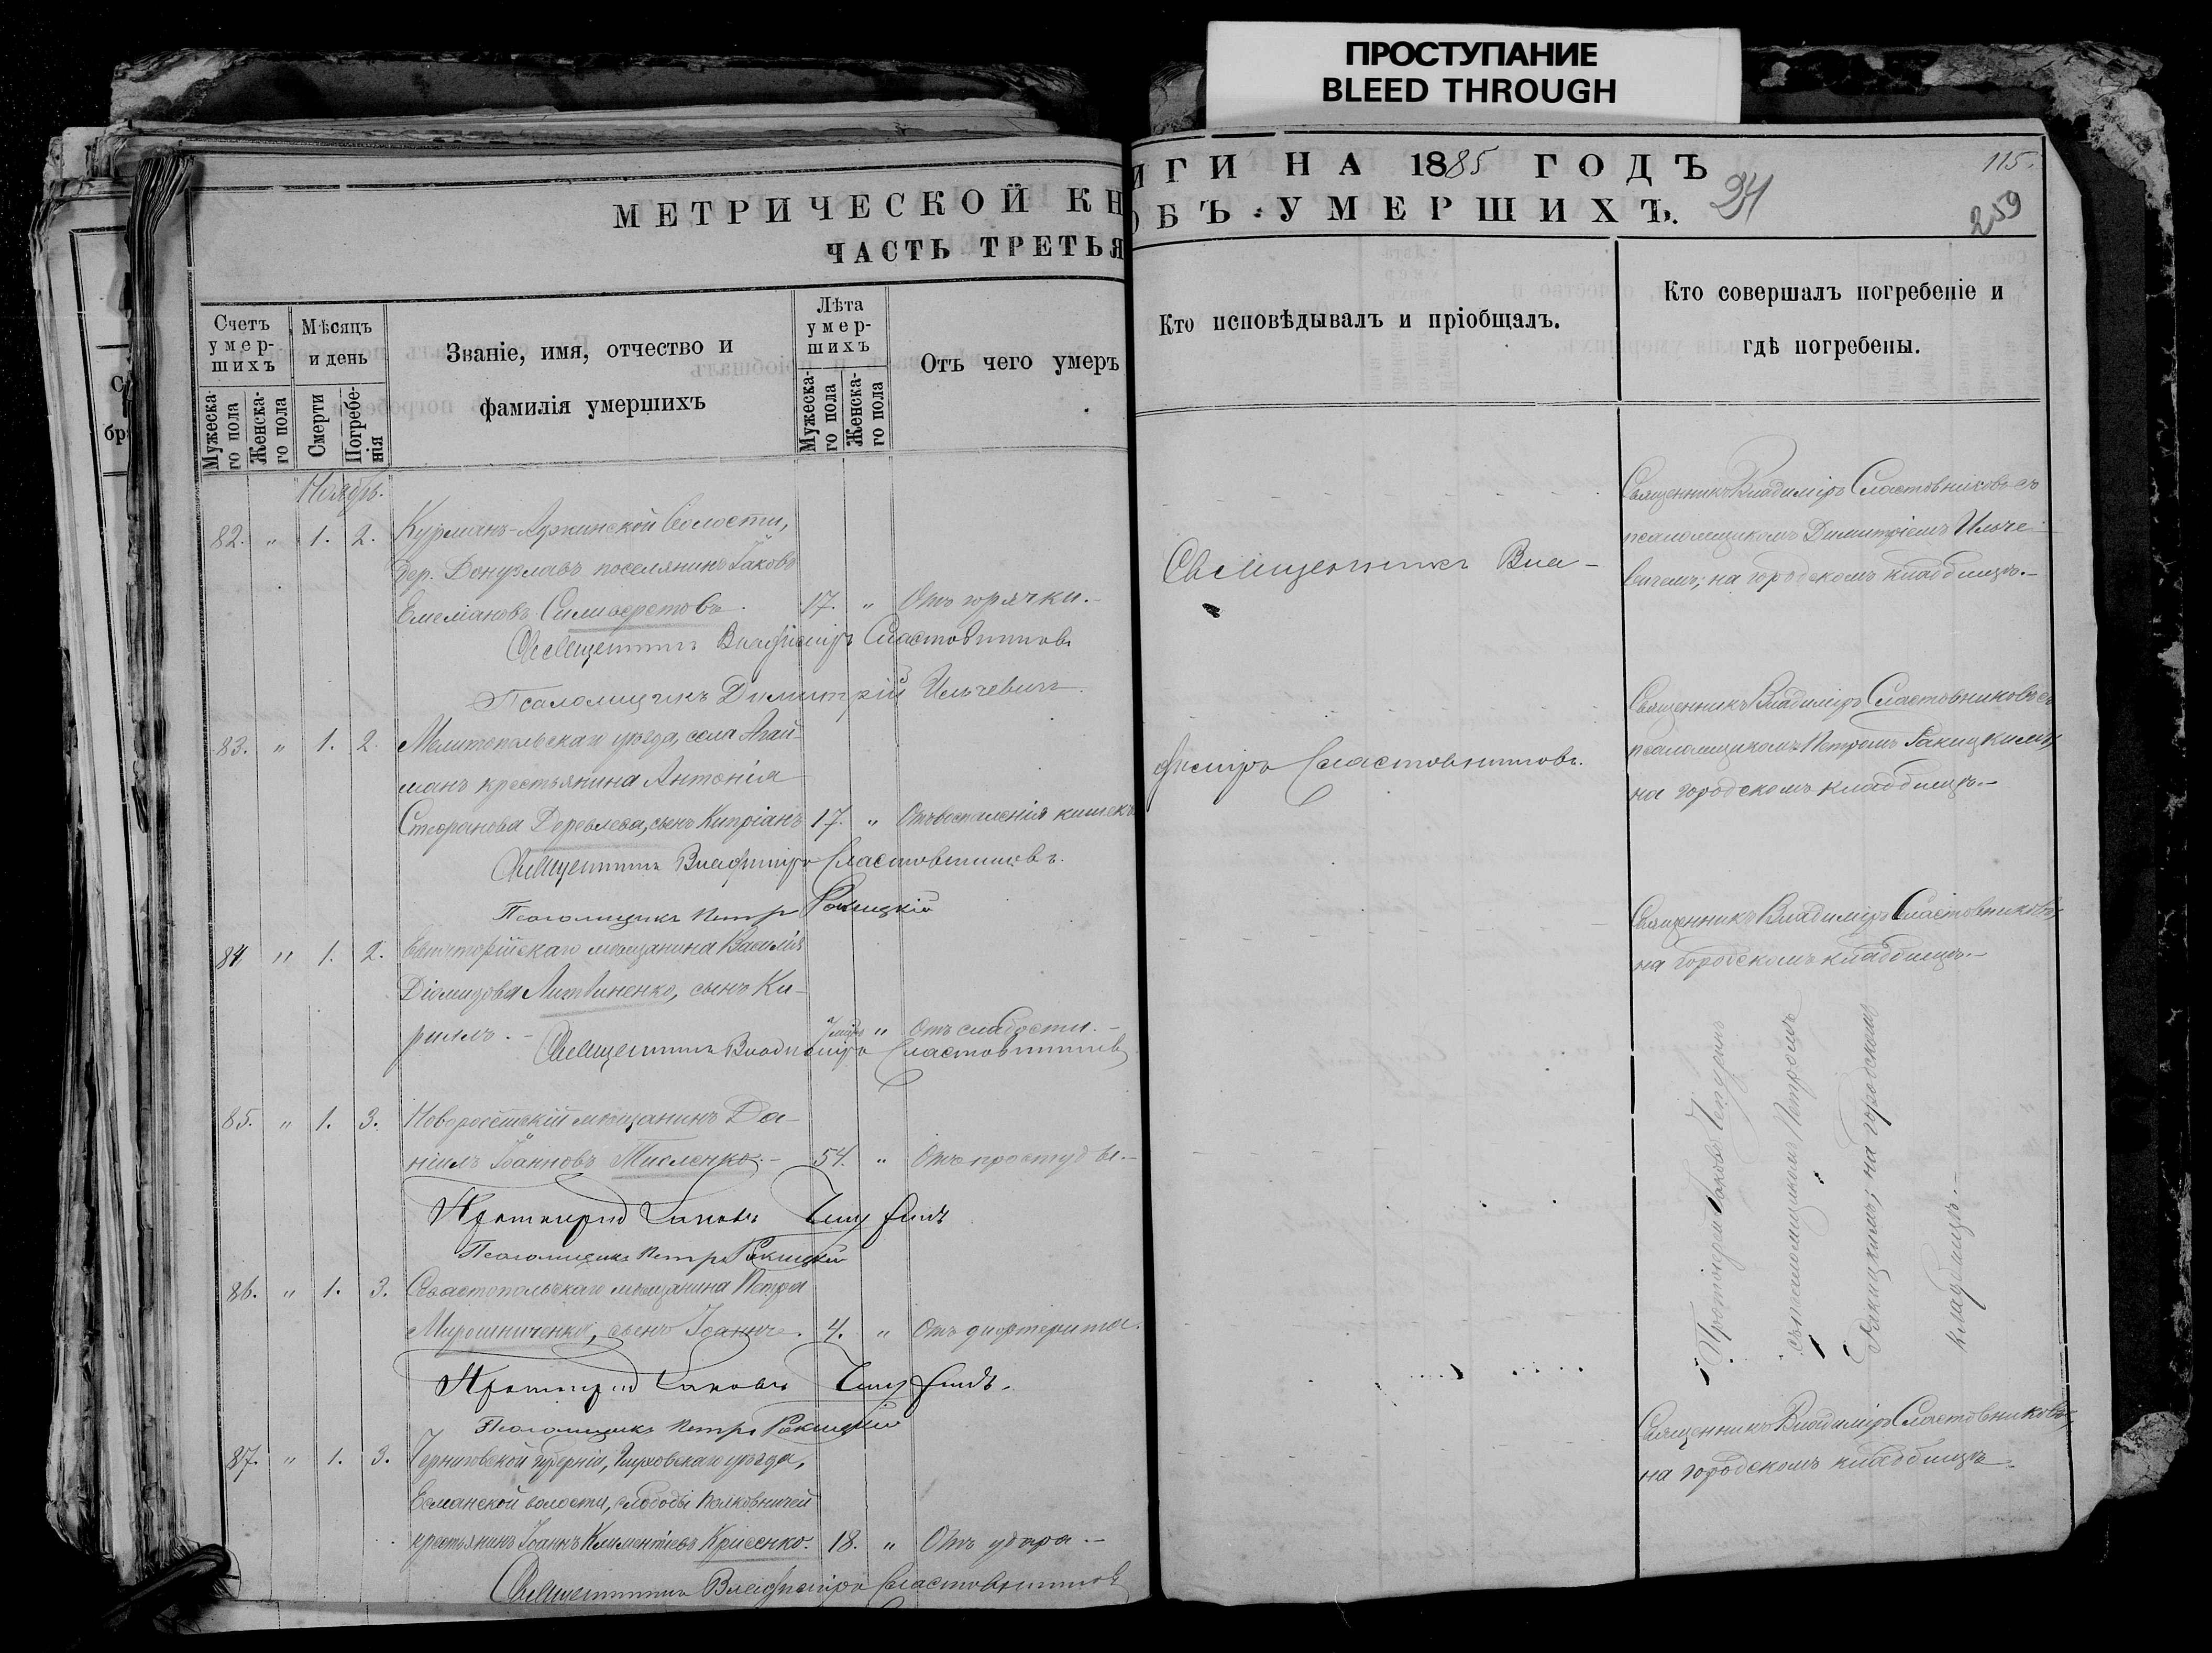 ПРОСТУПАНИЕ
BLEED THROUGH
МЕТРИЧЕСКОЙ КН
ЧАСТЬ ТРЕТЬЯ
ИГИ НА 1885 ГОДЪ
ОБЪ УМЕРШИХЪ.
24
115.
259
Счетъ умер-шихъ
Мужеска-го пола
Женска-го пола
Мѣсяцъ и день
Смерти
Погребе-нія
Званіе, имя, отчество и
фамилія умершихъ
Лѣта умер-шихъ
Мужеска-го пола
Женска-го пола
Отъ чего умеръ
Кто исповѣдывалъ и пріобщалъ.
Кто совершалъ погребеніе и
гдѣ погребены.
Ноябрь.
82. " 1. 2. Курманъ-Аджинской волости,
дер. Донузлавъ поселянинъ Іаковъ
17. " Отъ горячки.-
Священникъ Владиміръ Сластовниковъ
Псаломщикъ Димитрій Ильчевичъ.
Священникъ Вла-
Священникъ Владиміръ Сластовниковъ съ
псаломщикомъ Димитріемъ Ильче
вичемъ; на городскомъ кладбищѣ.-
83. " 1. 2. Мелитопольскаго уѣзда, села Агай-
манъ крестьянина Антонія
Стефанова Деревлева, сынъ Кипріанъ 17. " Отъ воспаленія кишекъ
Священникъ Владиміръ Сластовниковъ.
Псаломщикъ Петръ Ракицкій
диміръ Сластовниковъ.
Священникъ Владиміръ Сластовниковъ съ
псаломщикомъ Петромъ Ракицкимъ,
на городскомъ кладбищѣ.-
84 " 1. 2. Евпаторійскаго мѣщанина Василія
Діомидова Литвиненко, сынъ Ки-
риллъ.- " Отъ слабости.-
Священникъ Владиміръ Сластовниковъ
Священникъ Владиміръ Сластовниковъ,
на городскомъ кладбищѣ.-
85. " 1. 3. Новоросійскій мѣщанинъ Да-
ніилъ Іоанновъ Тисленко.- 54. " Отъ простуды.-
Протоіерей Іаковъ Чепуринъ
Псаломщикъ Петръ Ракицкій
86. " 1. 3. Севастопольскаго мѣщанина Петра
Мирошниченко, сынъ Іоаннъ. 4. " Отъ дифтерита.
Протоіерей Іаковъ Чепуринъ.
Псаломщикъ Петръ Ракицкій
Протоіерей Іаковъ Чепуринъ
съ псаломщикомъ Петромъ
Ракицкимъ; на городскомъ
кладбищѣ.-
87. " 1. 3. Черниговской губерніи, Глуховскаго уѣзда,
Есманской волости, слободы
крестьянинъ Іоаннъ Климентіевъ Крисенко. 18. " Отъ удара.-
Священникъ Владиміръ Сластовниковъ
Священникъ Владиміръ Сластовниковъ,
на городскомъ кладбищѣ.